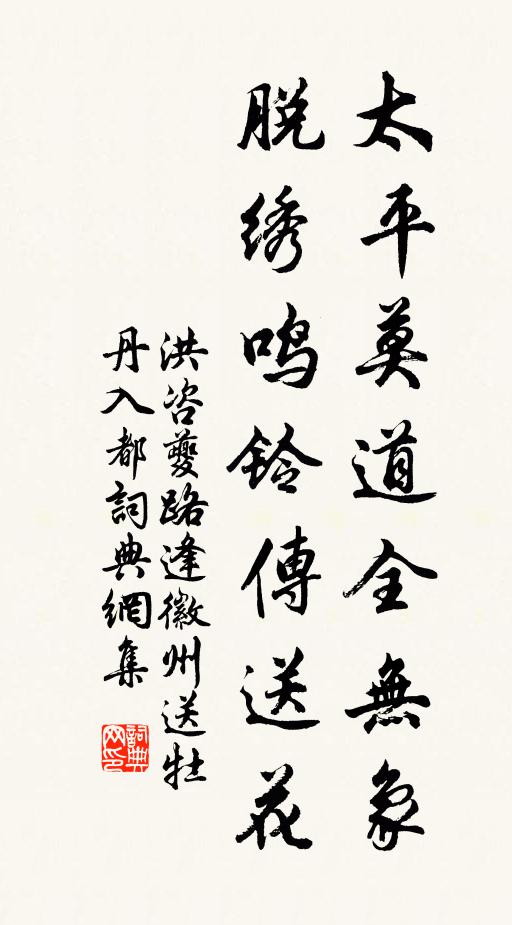 太平莫道全無象
脱绣鸣铃傳送花
洪咨夔路逢徽州送牡
丹入都詞典網集
詞典网印